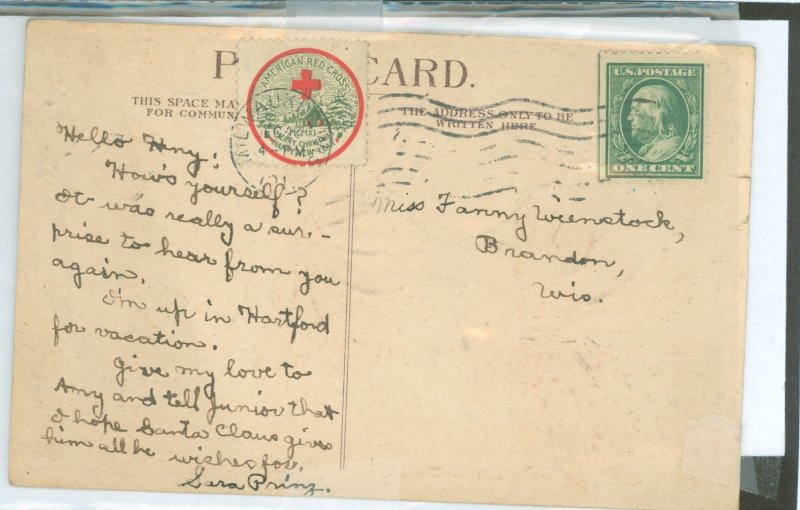 P CARD.
THIS SPACE MA
FOR COMMUN
THE ADDRESS ONLY TO BE
WRITTEN HERE
AMERICAN RED CROSS
MCMXI
MERRY CHRISTMAS
HAPPY NEW YEAR
MILWAUK
U.S. POSTAGE
ONE CENT
Hello Hny:
How's yourself?
It was really a sur-
prise to hear from you
again.
I'm up in Hartford
for vacation.
Give my love to
Amy and tell Junior that
I hope Santa Claus gives
him all he wishes for.
Sara Prinz.
Miss Fanny Weenstock,
Brandon,
Wis.